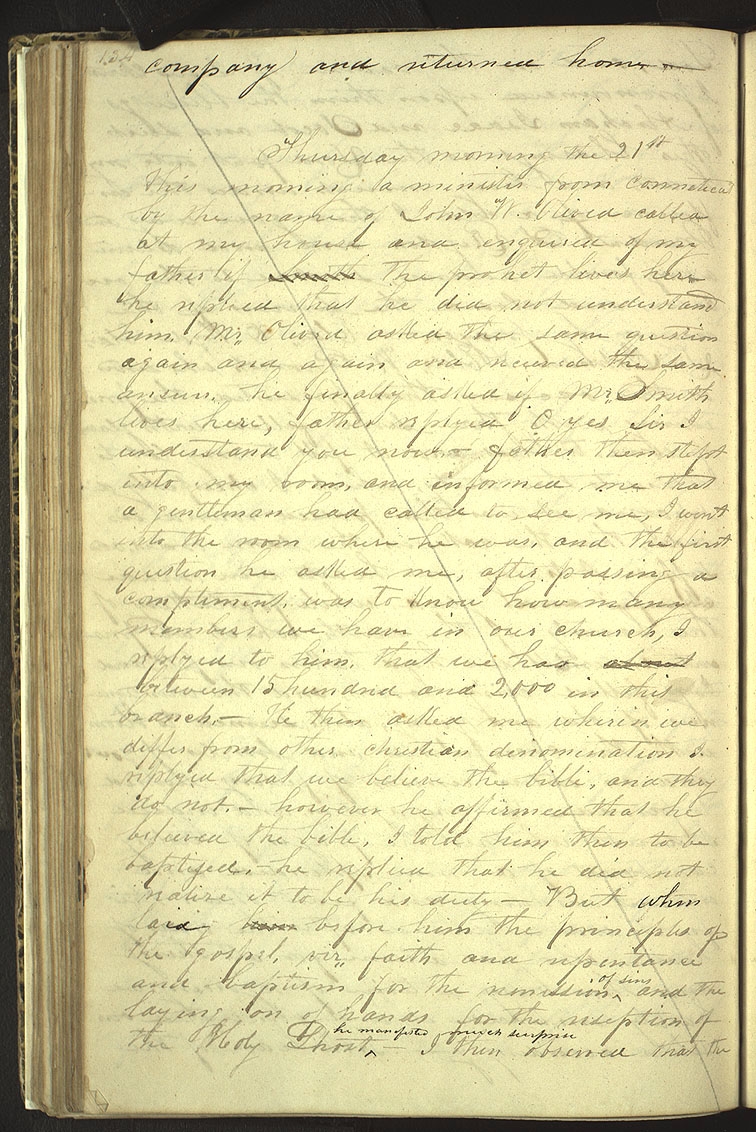 134
company and returned home —
Thursday morning the 21st
This morning a minister from Connecticut
by the name of John W. Olived called
at my house and enquired of my
father if the prohet lives here
he replied that he did not understand
him. Mr. Olived asked the same question
again and again and recieved the same
answer, he finally asked if Mr. Smith
lives here, father replyed O yes Sir I
understand you now — father then stept
into my room, and informed me that
a gentleman had called to see me, I went
into the room where he was, and the first
question he asked me, after passing a
compliment, was to know how many
members we have in our church, I
replyed to him, that we had about
between 15 hundred and 2,000 in this
branch. — He then asked me wherein we
differ from other christian denomination I
replyed that we believe the bible, and they
do not. — however he affirmed that he
believed the bible, I told him then to be
baptised, — he replied that he did not
realize it to be his duty — But when
laid him before him the principles of
the gospel, viz. faith and repentance
and baptism for the remission of sins and the
laying on of hands for the reseption of
the Holy Ghost he manifested much surprise — I then observed that the